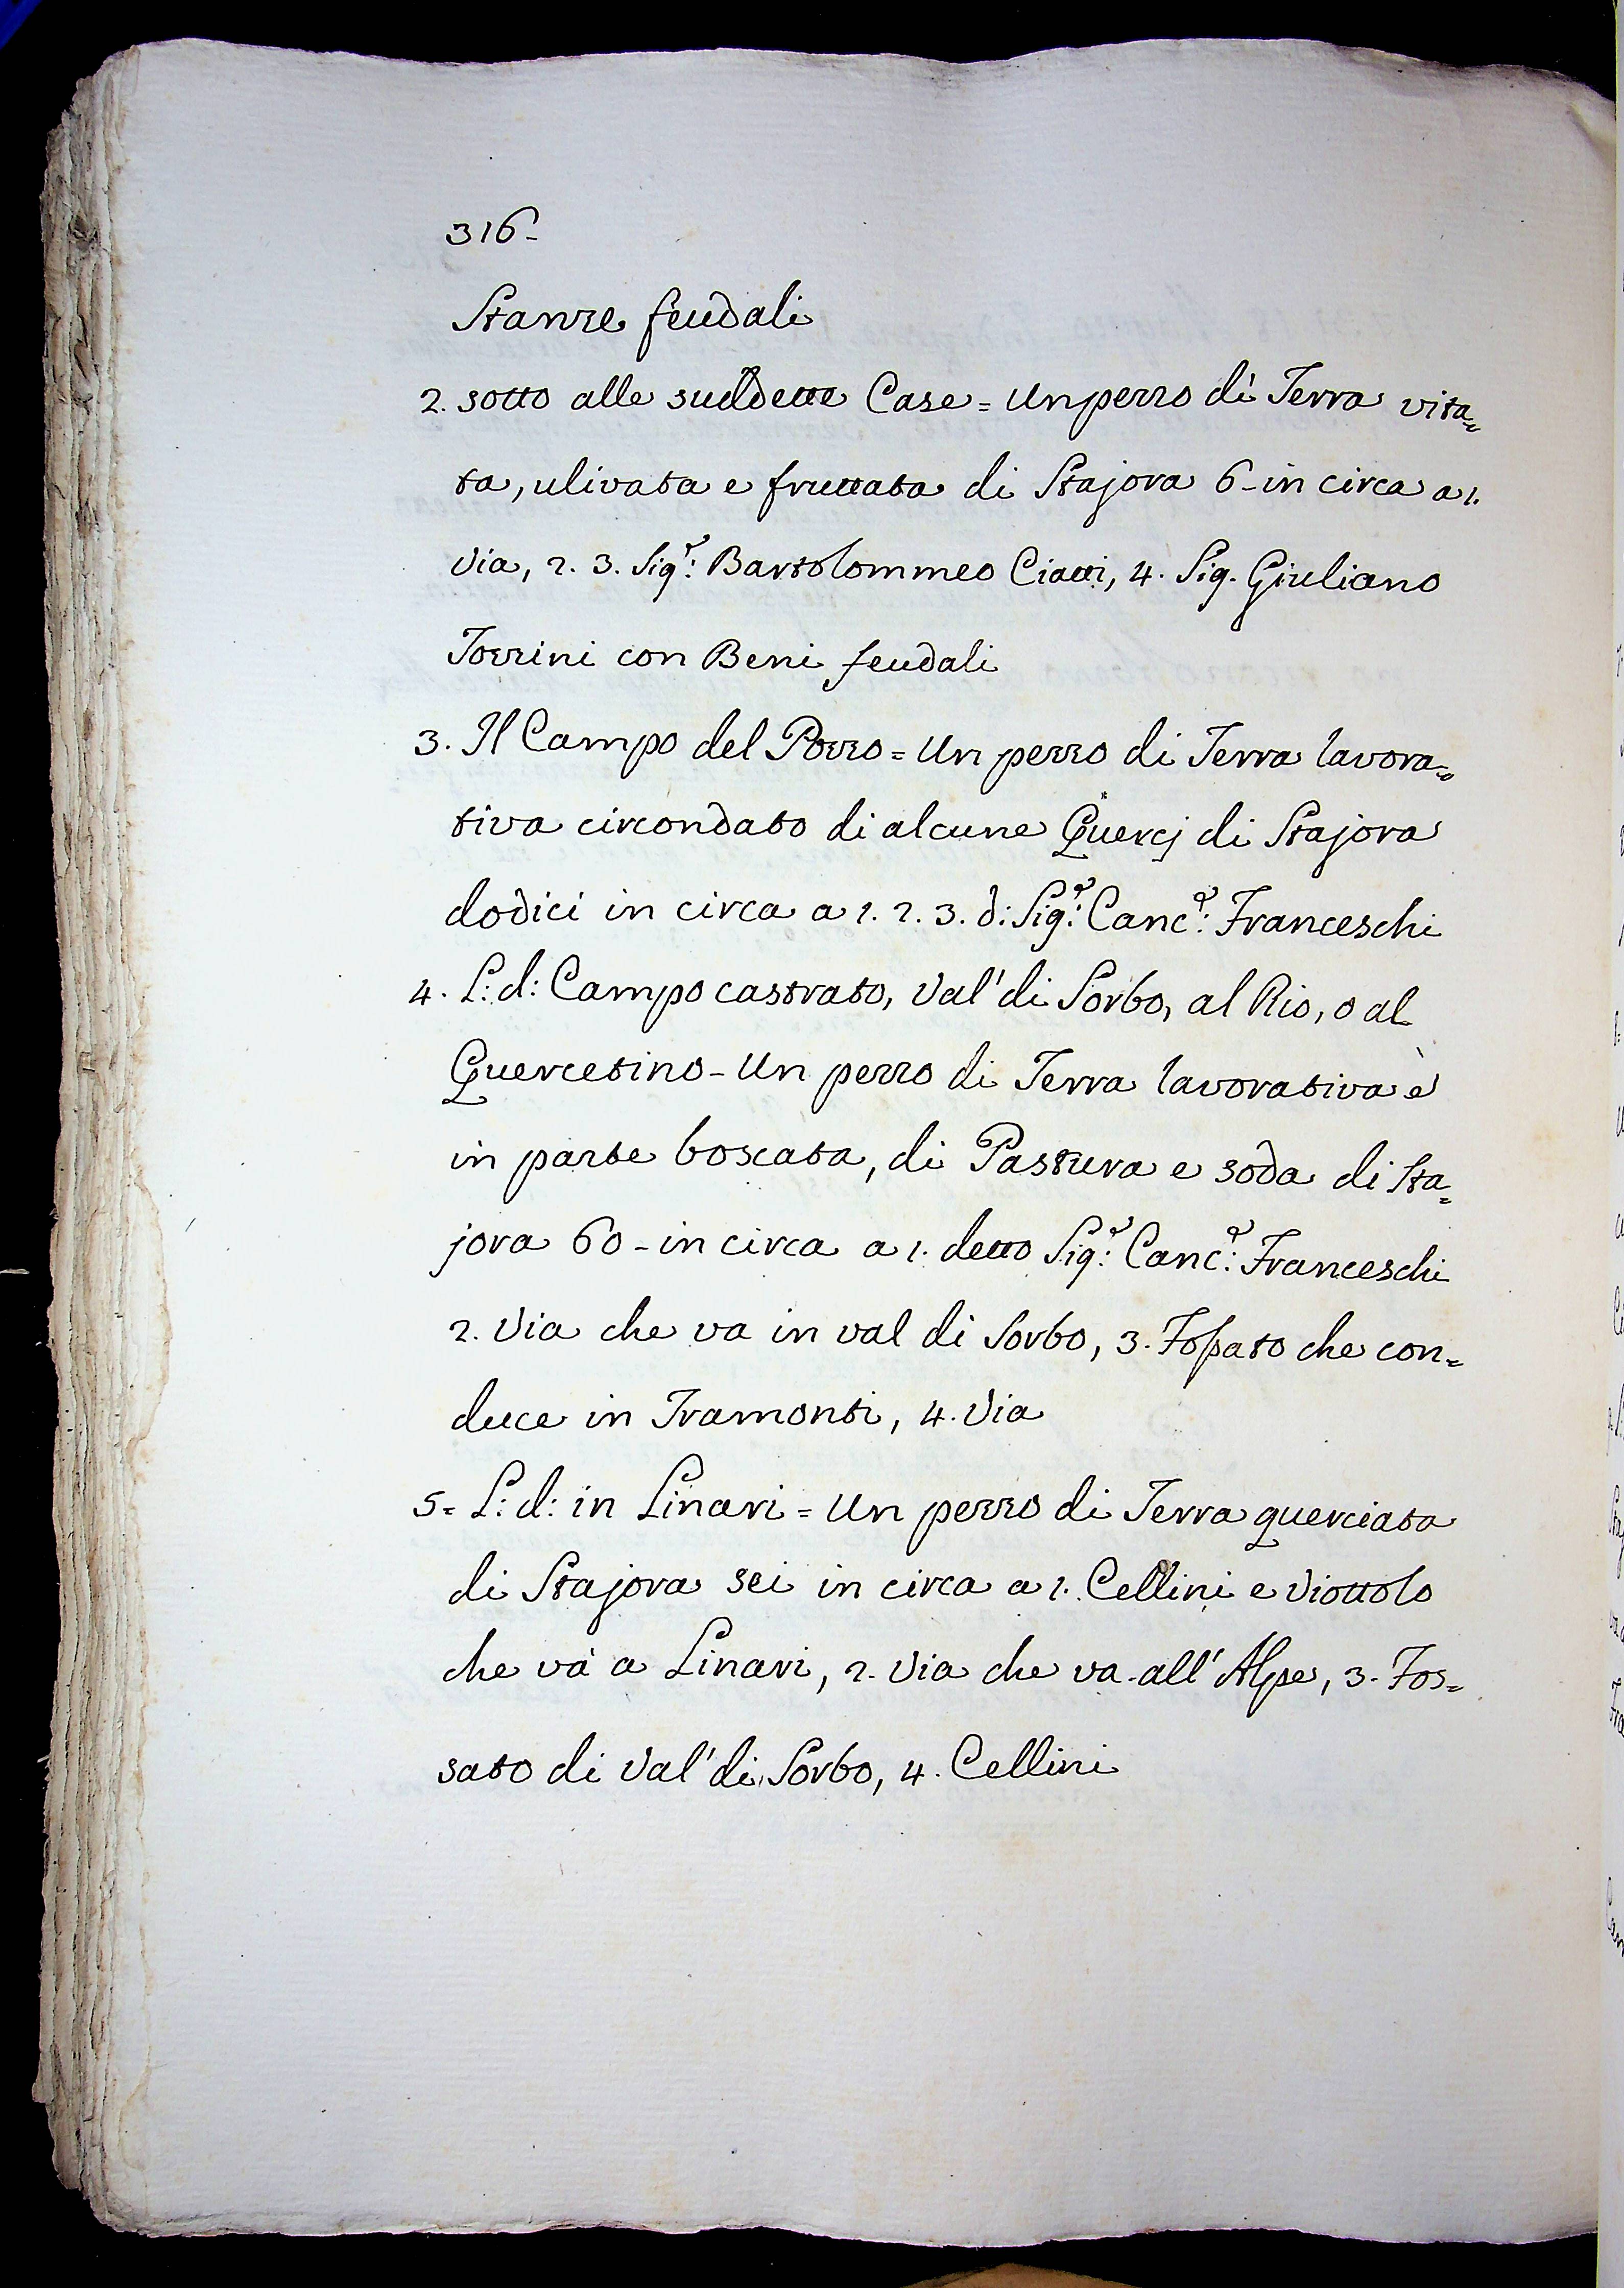 316-
Stanze feudali
2. sotto alle suddette Case = Un pezzo di Terra vita=
ta, ulivata e fruttata di Stajora 6- in circa a 1.
Via, 2. 3. Sig.r: Bartolommeo Ciatti, 4. Sig. Giuliano
Torrini con Beni feudali
3. Il Campo del Pozzo = Un pezzo di Terra lavora=
tiva circondato di alcune Quercj di Stajora
dodici in circa a 1. 2. 3. d: Sig.r: Canc.r: Franceschi
4. L: d: Campo castrato, Val' di Sorbo, al Rio, o al
Quercetino - Un pezzo di Terra lavorativa è
in parte boscata, di Pastura e soda di Sta=
jora 60 - in circa a 1. detto Sig.r: Canc.r: Franceschi
2. Via che va in val di Sorbo, 3. Fossato che con=
duce in Tramonti, 4. Via
5= L: d: in Linari = Un pezzo di Terra querciata
di Stajora sei in circa a 1. Cellini e Viottolo
che và a Linari, 2. Via che va all' Alpe, 3. Fos=
sato di Val' di Sorbo, 4. Cellini